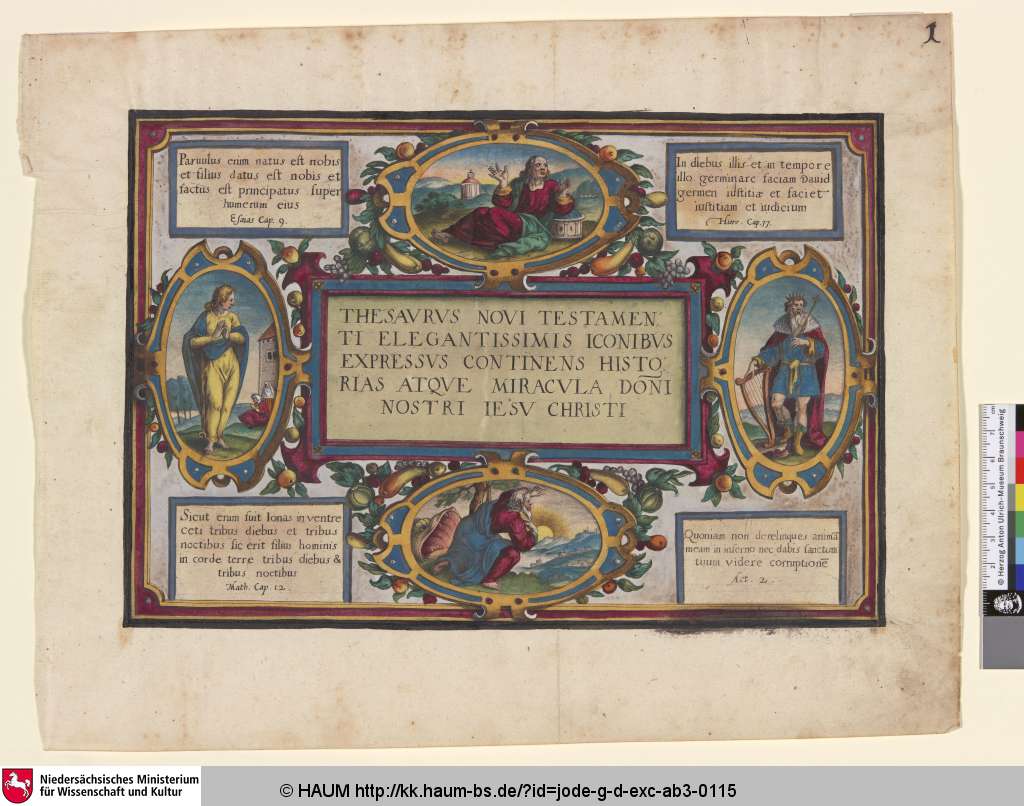 1
Paruulus enim natus est nobis
et filius datus est nobis et
factus est principatus super
humerum eius
Esaias Cap. 9.
In diebus illis et in tempore
illo germinare faciam Dauid
germen iustitiæ et faciet
iustitiam et iudicium
Hiere. Cap.
THESAVRVS NOVI TESTAMEN:
TI ELEGANTISSIMIS ICONIBVS
EXPRESSVS CONTINENS HISTO,
RIAS ATQVE MIRACVLA DOÑI
NOSTRI IESV CHRISTI
Sicut enim fuit Ionas in ventre
ceti tribus diebus et tribus
noctibus sic erit filius hominis
in corde terre tribus diebus &
tribus noctibus
Math. Cap. 12.
Quoniam non derelinques animā
meam in inferno nec dabis sanctum
tuum videre corruptionē
Act. 2.
© Herzog Anton Ulrich-Museum Braunschweig
cm
Niedersächsisches Ministerium
für Wissenschaft und Kultur
© HAUM http://kk.haum-bs.de/?id=jode-g-d-exc-ab3-0115